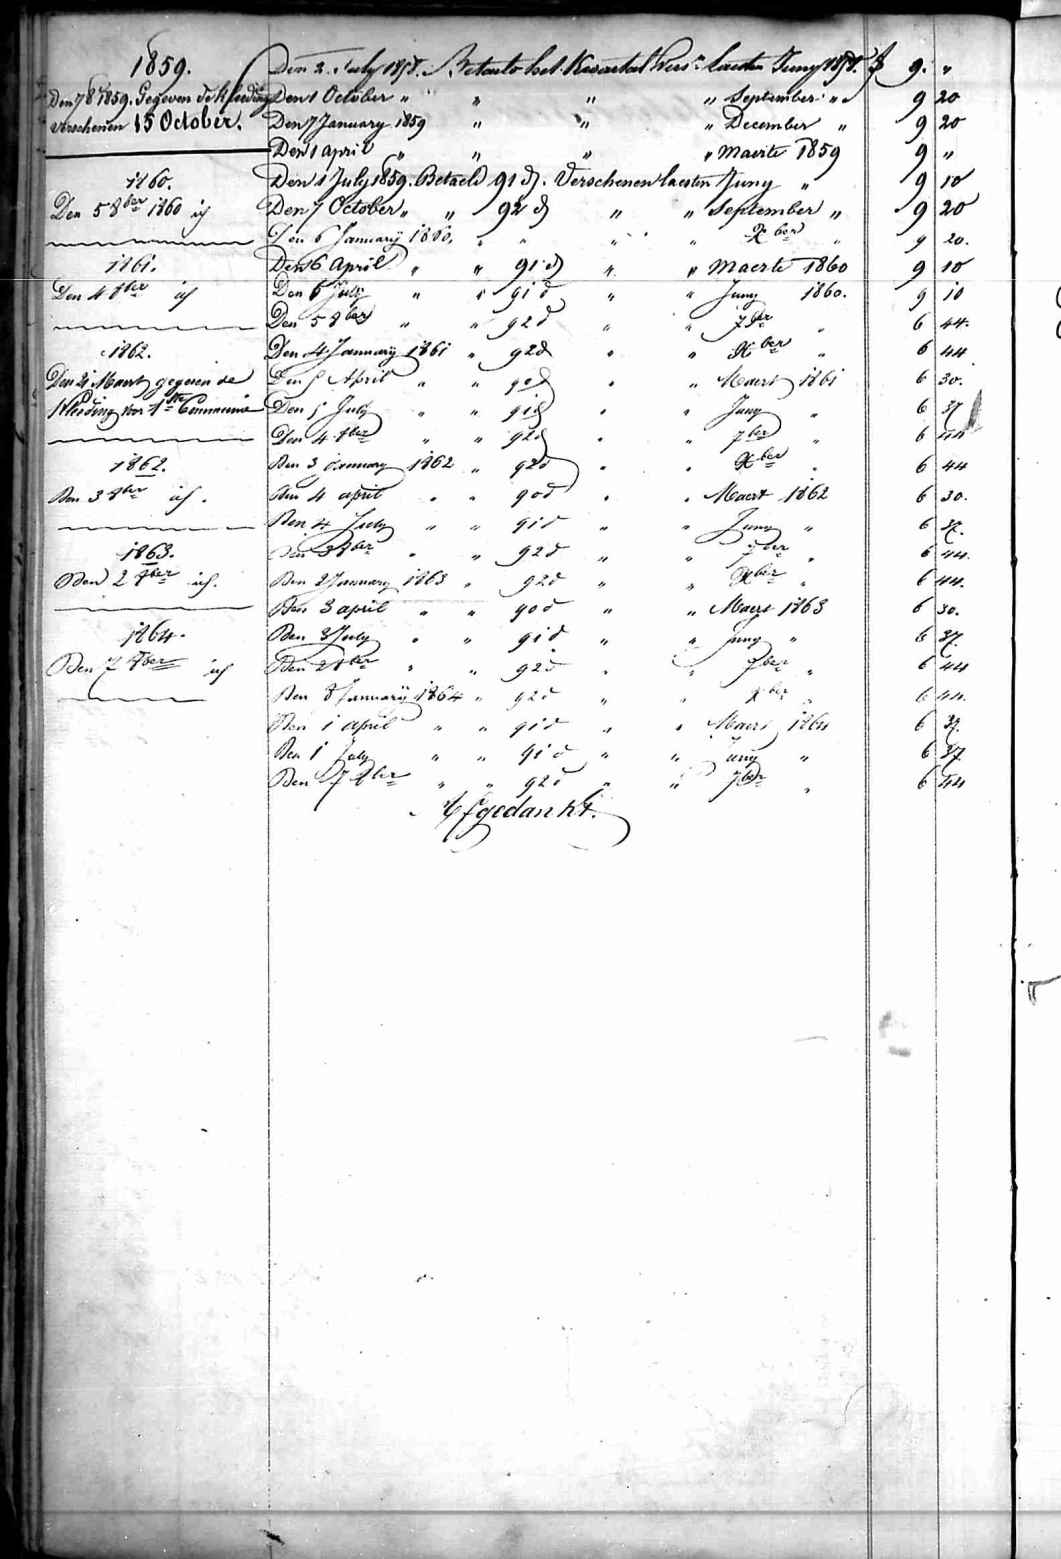 1859.
Den 7 8br 1859. Gegeven de Kleeding
verschenen 15 October.
1860.
Den 5 8ber 1860 id
1861.
Den 4 8ber id
1862.
Den 21 Maert gegeven de
Kleeding voor 1ste Communie
1862.
Den 3 8ber id.
1863.
Den 2 8ber id.
1864.
Den 7 8ber id
Den 2 July 1858. Betaald het Kwartal laesten Juny 1858. f 9. "
Den 1 October " " " " September " 9 20
Den 7 January 1859 " " " December " 9 20
Den 1 April " " " " Maerte 1859 9 "
Den 1 July 1859. Betaeld 91 d. Verschenen laesten Juny " 9 10
Den 7 October " " 92 d " " September " 9 20
Den 6 January 1860. " " " " Xber " 9 20.
Den 6 April " " 91 d " " Maerte 1860 9 10
Den 6 July " " 91 d " " Juny 1860. 9 10
Den 5 8ber " " 92 d " " 7ber " 6 44.
Den 4 January 1861 " 92 d " " Xber " 6 44
Den 5 April " " 90 d " " Maert 1861 6 30.
Den 5 July " " 91 d " " Juny " 6 37
Den 4 8ber " " 92 d " " 7ber " 6 44
Den 3 January 1862 " 92 d " " Xber " 6 44
Den 4 april " " 90 d " " Maert 1862 6 30.
Den 4 July " " 91 d " " Juny " 6 37.
Den 3 8ber " " 92 d " " 7ber " 6 44.
Den 2 January 1863 " 92 d " " Xber " 6 44.
Den 3 april " " 90 d " " Maert 1863 6 30.
Den 3 July " " 91 d " " Juny " 6 37.
Den 2 8ber " " 92 d " " 7ber " 6 44
Den 8 January 1864 " 92 d " " Xber " 6 44.
Den 1 april " " 91 d " " Maert 1864 6 37.
Den 1 July " " 91 d " " Juny " 6 37
Den 7 8ber " " 92 d " " 7ber " 6 44
Afgedankt.